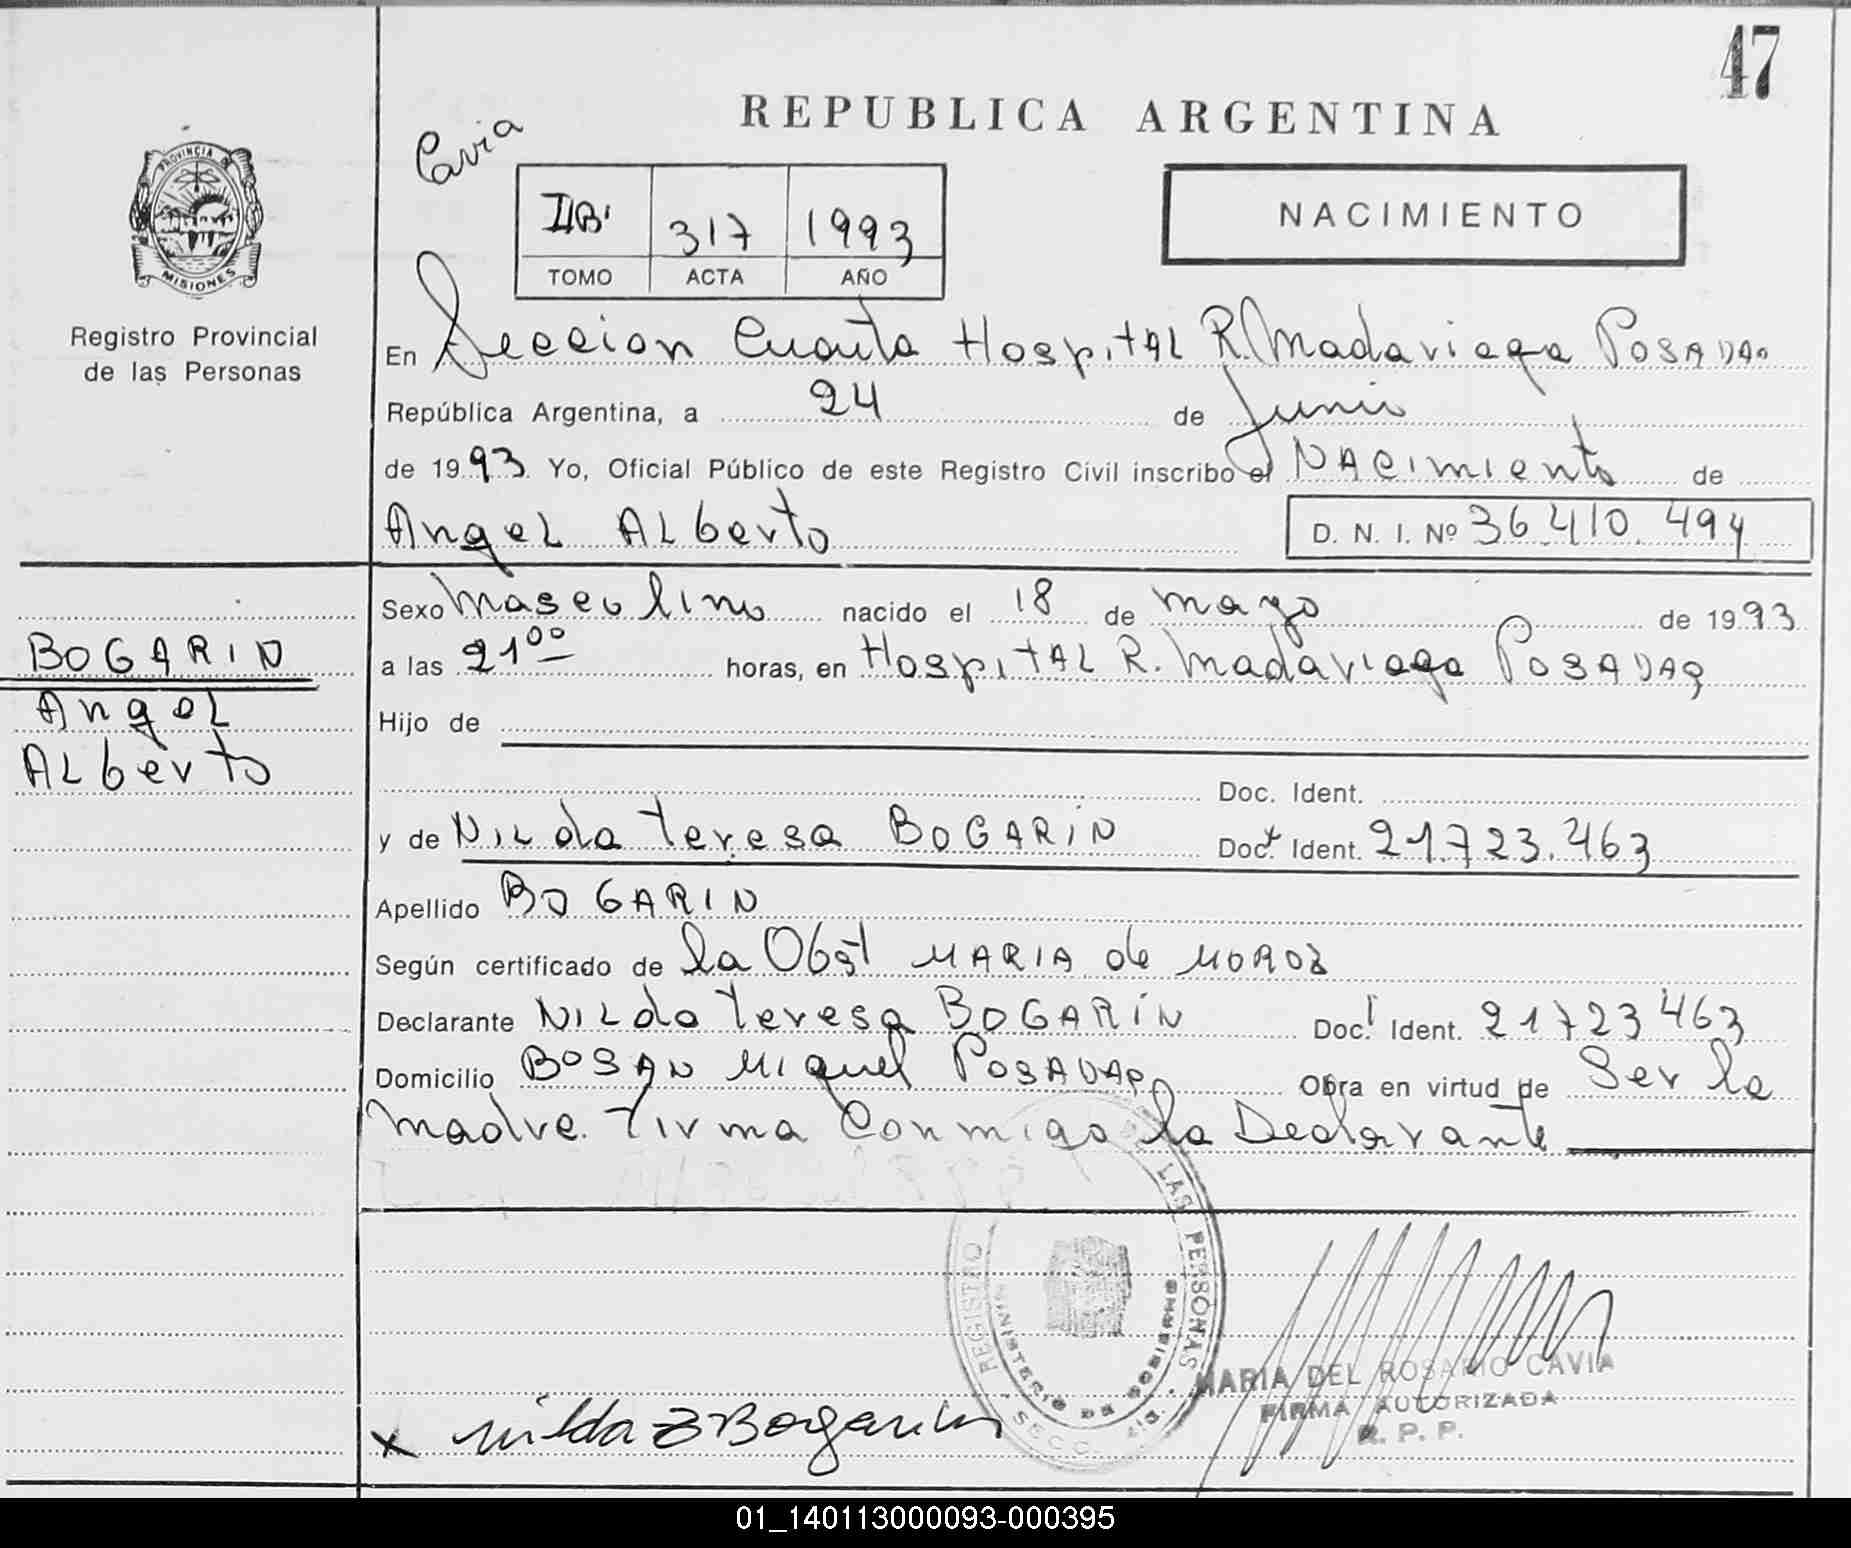 47
REPUBLICA ARGENTINA
Cavia
PROVINCIA DE
MISIONES
Registro Provincial
de las Personas
IIB' 317 1993
TOMO ACTA AÑO
NACIMIENTO
En Seccion Cuarta Hospital R. Madariaga Posadas
República Argentina, a 24 de Junio
de 1993 Yo, Oficial Público de este Registro Civil inscribo el Nacimiento de
Angel Alberto
D. N. I. Nº 36.410.494
Sexo Masculino nacido el 18 de mayo de 1993
BOGARIN
Angel
Alberto
a las 21 00 horas, en Hospital R. Madariaga Posadas
Hijo de
Doc. Ident.
y de Nilda Teresa BOGARÍN Doc. Ident. 21.723.463
Apellido BOGARIN
Según certificado de la Obst MARIA de
Declarante Nilda Teresa BOGARÍN Doc. Ident. 21723463
Domicilio Bo SAN Miguel Posadas Obra en virtud de Ser la
madre. Firma Conmigo la Declarante
REGISTRO LAS PERSONAS
MINISTERIO DE GOBIERNO
SECC.
MARIA DEL ROSARIO CAVIA
FIRMA AUTORIZADA
R. P. P.
x Nilda T Bogarin
01_140113000093-000395